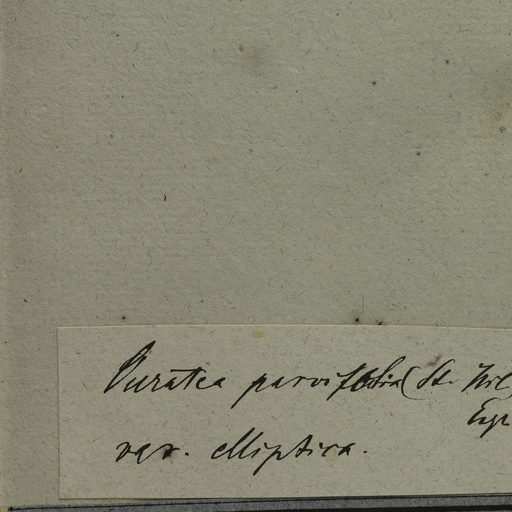 Ouratea parvifolia (St. Hil)
Engl
var. elliptica.